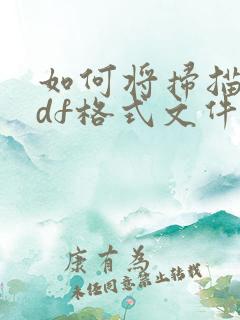 如何将扫描
df格式文件
康有为
未经同意禁止转载